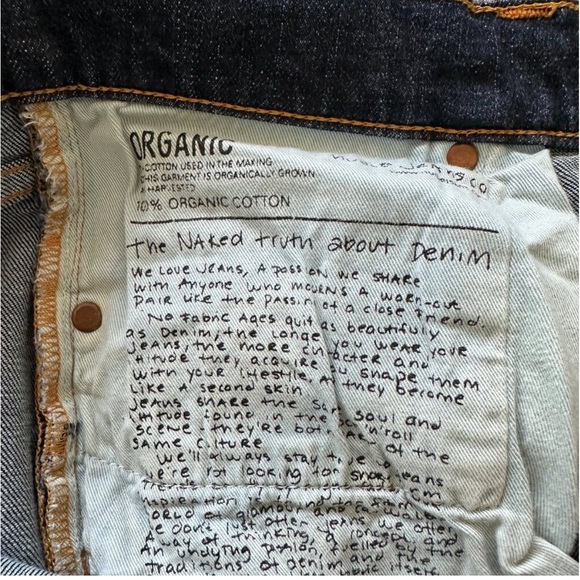 ORGANIC
COTTON USED IN THE MAKING
THIS GARMENT IS ORGANICALLY GROWN
HARVESTED
0% ORGANIC COTTON
the NAked truth about Denim
We Love JeANS, A pass on we SHARe
with Anyone who mourns A worn-out
PAIR Like the PASSin of a close friend.
No Fabric Ages quit as beautifully
as Denim, the Longe you wear your
Jeans, the more ch acter and
titude they acquire u shape them
with your Lifestyle, As they become
Like A second skin
Jeans share the Soul and
titude found in the 'n'roll
Scene they're bot of the
SAME culture
We'll always stay
We're not looking for jeans
of glamour
we don't just offer jeans, we offer
A way of thinking, a concept and
An undying passion, fuelled by the
traditions of denim and the
fabric itself